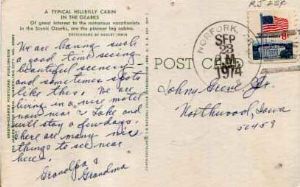 A TYPICAL HILLBILLY CABIN
IN THE OZARKS
Of great interest to the numerous vacationists
in the Scenic Ozarks, are the pioneer log cabins.
We are having such
a good time seeing
beautiful scenery
and some times spots
like this. We are
living in a nice motel
room near a Lake and
will stay a few days.
There are many nice
things to see near
here.
Grandpa &
Grandma
POST CARD
NORFORK
SEP
23
M
1974
Johny Greve Jr.
Northwood, Iowa
50459